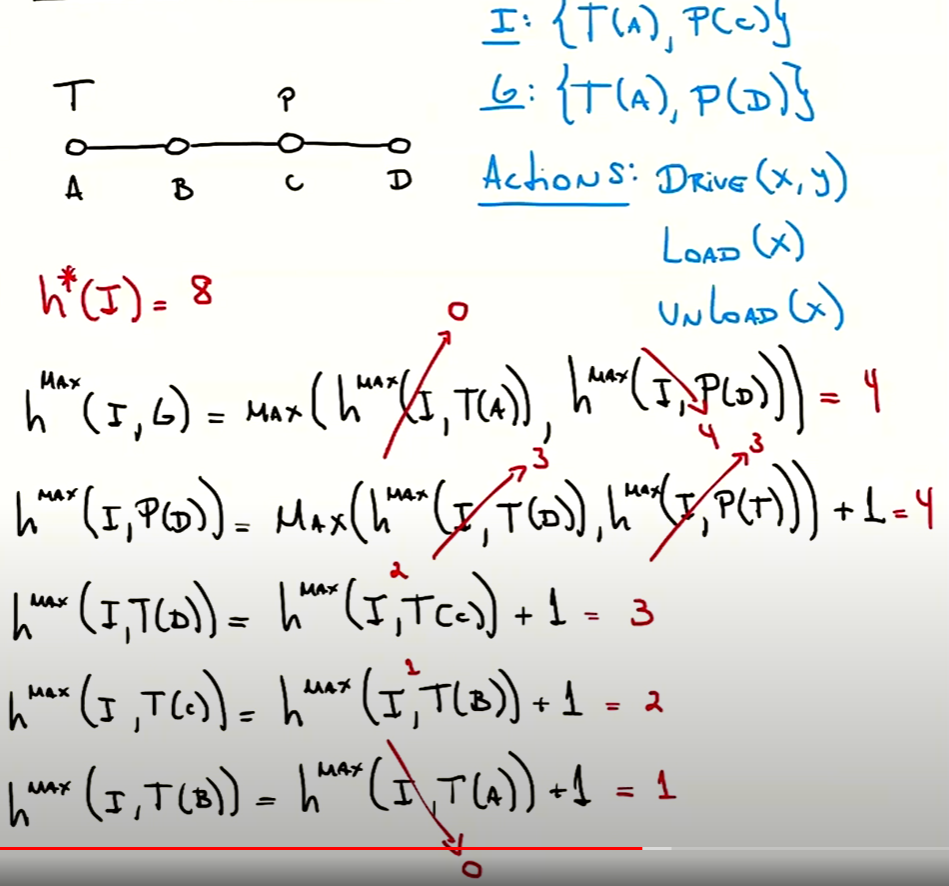 I: {T(A), P(C)}
G: {T(A), P(D)}
T P
A B C D
Actions: DRIVE(x,y)
LOAD(x)
UNLOAD(x)
h*(I) = 8
0
h^MAX(I,G) = MAX(h^MAX(I,T(A)), h^MAX(I,P(D))) = 4
4
3 3
h^MAX(I,P(D)) = MAX(h^MAX(I,T(D)), h^MAX(I,P(T))) + 1 = 4
2
h^MAX(I,T(D)) = h^MAX(I,T(C)) + 1 = 3
1
h^MAX(I,T(C)) = h^MAX(I,T(B)) + 1 = 2
h^MAX(I,T(B)) = h^MAX(I,T(A)) + 1 = 1
0